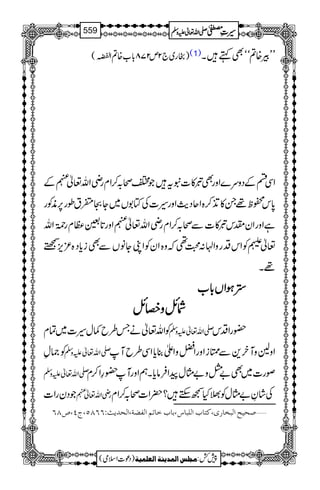 سیرتِ مصطفیٰ صلی اللہ تعالیٰ علیہ وسلم 559
’’بیر خاتم‘‘ بھی کہتے ہیں۔(1) (بخاری ج۲ ص۸۷۲ باب خاتم الفضہ)
اسی قسم کے دوسرے اور بھی تبرکات نبویہ ہیں جو مختلف صحابہ کرام رضی اللہ تعالیٰ عنہم کے
پاس محفوظ تھے جن کا تذکرہ احادیث اور سیرت کی کتابوں میں جابجا متفرق طور پر مذکور
ہے اور ان مقدس تبرکات سے صحابہ کرام رضی اللہ تعالیٰ عنہم اور تابعین عظام رحمۃ اللہ
تعالیٰ علیہم کو اس قدر والہانہ محبت تھی کہ وہ ان کو اپنی جانوں سے بھی زیادہ عزیز سمجھتے
تھے۔
سترہواں باب
شمائل و خصائل
حضور اقدس صلی اللہ تعالیٰ علیہ وسلم کو اللہ تعالیٰ نے جس طرح کمال سیرت میں تمام
اولین و آخرین سے ممتاز اور افضل و اعلیٰ بنایا اسی طرح آپ صلی اللہ تعالیٰ علیہ وسلم کو جمالِ
صورت میں بھی بے مثل و بے مثال پیدا فرمایا۔ ہم اور آپ حضور اکرم صلی اللہ تعالیٰ علیہ وسلم
کی شانِ بے مثال کو بھلا کیا سمجھ سکتے ہیں؟ حضرات صحابہ کرام رضی اللہ تعالیٰ عنہم جو دن رات
صحیح البخاری، کتاب اللباس، باب خاتم الفضۃ، الحدیث: ۵۸۶۶، ج۴، ص۶۸
پیش کش: مجلس المدینۃ العلمیۃ (دعوتِ اسلامی)